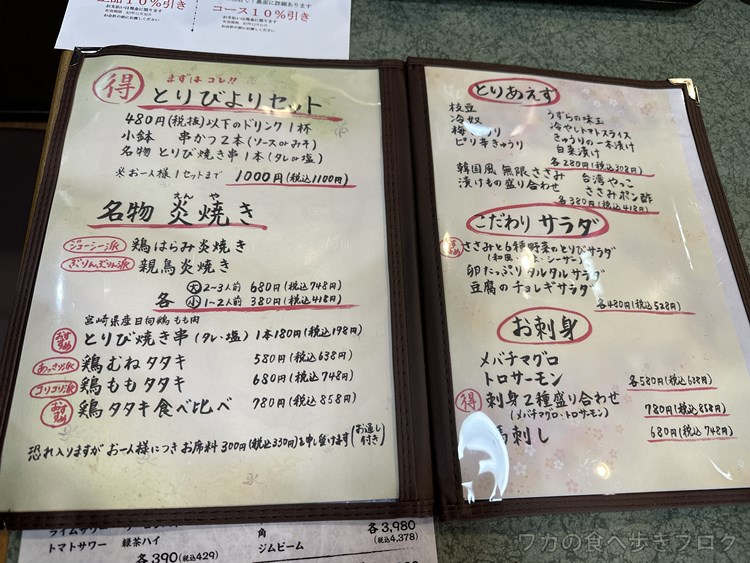 全品10%引き
お支払いは現金に限ります
コース10%引き
お支払いは現金に限ります
得
まずはコレ!!
とりびよりセット
480円(税抜)以下のドリンク1杯
小鉢 串かつ2本(ソースorみそ)
名物 とりび焼き串1本(タレor塩)
※お一人様1セットまで 1000円(税込1100円)
えん や
名物 炎焼き
ジューシー派 鶏はらみ炎焼き
親鳥炎焼き
大 2~3人前 680円(税込748円)
各
小 1~2人前 380円(税込418円)
宮崎県産日向鶏もも肉
おすすめ とりび焼き串(タレ・塩) 1本180円(税込198円)
あっさり派 鶏むねタタキ 580円(税込638円)
コリコリ派 鶏ももタタキ 680円(税込748円)
おすすめ 鶏タタキ食べ比べ 780円(税込858円)
恐れ入りますがお一人様につきお席料300円(税込330円)を申し受けます(お通し付き)
とりあえず
枝豆 うずらの味玉
冷奴 冷やしトマトスライス
きゅうりの一本漬け
ピリ辛きゅうり 白菜漬け
各280円(税込308円)
韓国風無限ささみ 台湾やっこ
漬けもの盛り合わせ ささみポン酢
各380円(税込418円)
こだわりサラダ
おすすめ ささみと6種野菜のとりびサラダ
卵たっぷりタルタルサラダ
豆腐のチョレギサラダ
各480円(税込528円)
お刺身
メバチマグロ
トロサーモン 各580円(税込638円)
得 刺身2種盛り合わせ 780円(税込858円)
(メバチマグロ・トロサーモン)
馬刺し 680円(税込748円)
ライムサワー
トマトサワー 緑茶ハイ
各390(税込429)
各3,980
角 (税込4,378)
ジムビーム
ワカの食べ歩きブログ